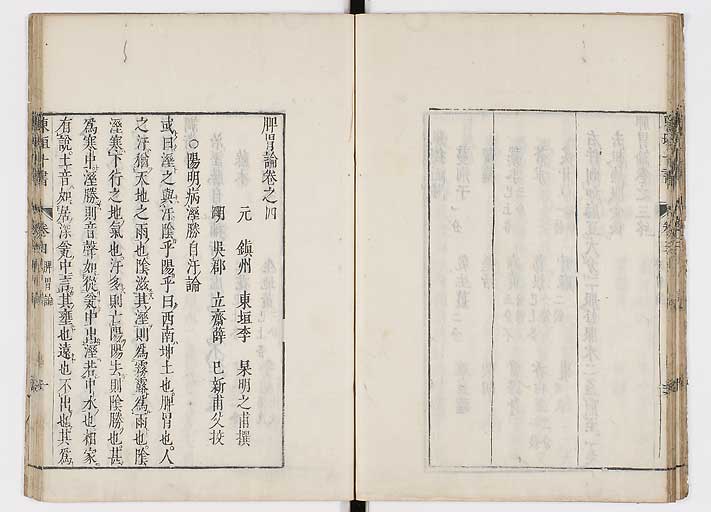 脾胃論卷之四
元 鎮州 東垣李 杲明之甫撰
明 吳郡 立齋薛 己新甫父挍
○陽明病溼勝自汗論
或曰溼之與汗陰乎陽乎曰西南坤土也脾胃也人
之汗猶天地之雨也陰滋其溼則爲霧露爲雨也陰
溼寒下行之地氣也汗多則亡陽陽去則陰勝也甚
爲寒中溼勝則音聲如從瓮中出溼若中水也相家
有說土音如居深瓮中言其壅也遠也不出也其爲
東垣十書 卷四 脾胃論